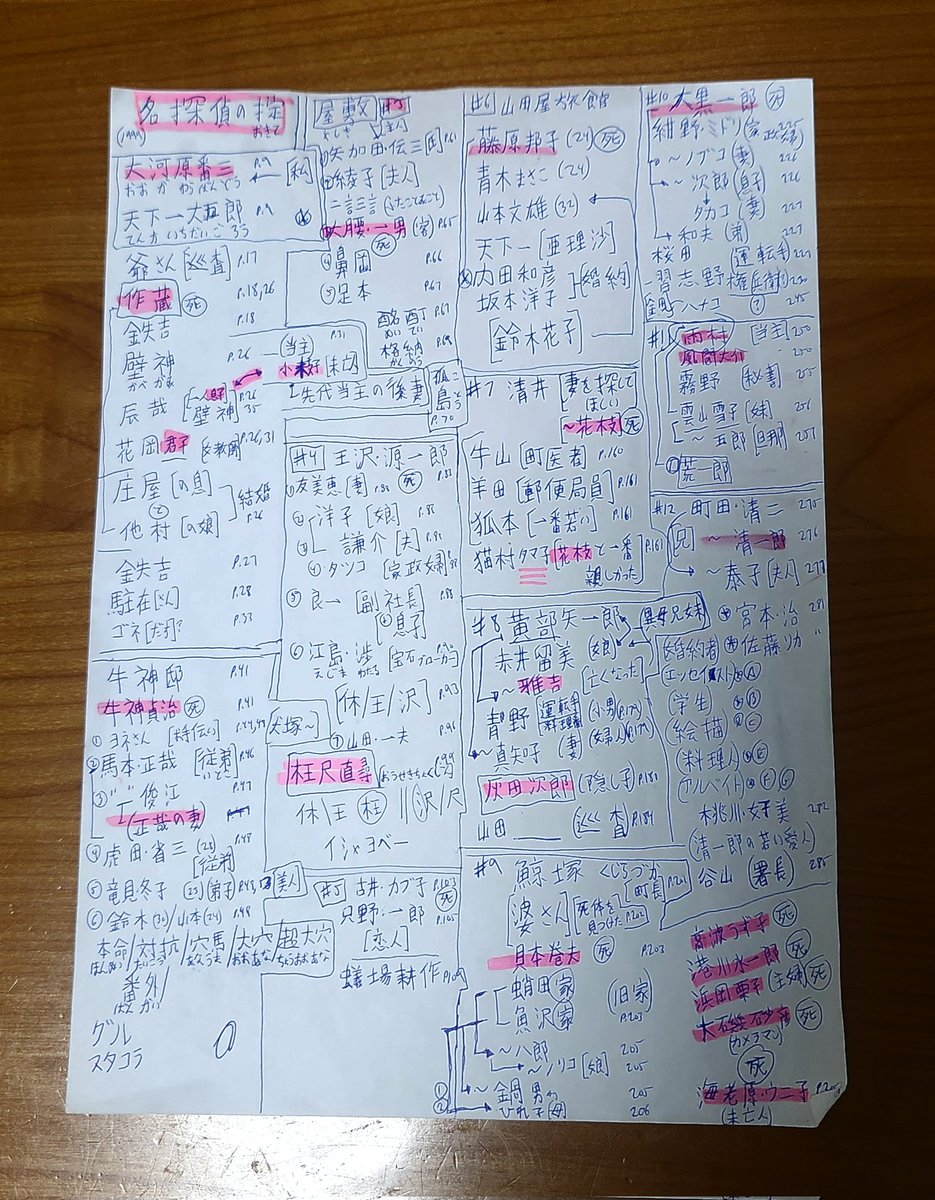 名探偵の掟
(1999) おきて
大河原番三 P.9 [私]
おおがわらばんぞう
天下一大五郎 P.9
てんかいちだいごろう
爺さん[巡査] P.17
作蔵 死 P.18,26
金失吉 P.18
壁神 P.26
かべがみ
辰哉 [壁神 P.26
35
花岡君子 P.26,31
庄屋[の息]
と 結婚
他村[の娘] P.26
金失吉 P.27
駐在[さん] P.28
ゴネ P.33
牛神邸 P.41
牛神貞治 死 P.41
①ヨネさん[手伝い]
②馬本正哉[従弟 P.46
いとこ
③〃〃俊江 P.47
(正哉の妻)
④虎田・省三(28) P.48
[従弟]
⑤竜見冬子(23)(弟子)
⑥鈴木(30)/山本(24) P.48
本命/対抗/穴馬/大穴/超大穴
ほんめい たいこう あなうま おおあな ちょうおおあな
番外
ばんがい
グル
スタコラ
屋敷 #3
やしき
矢加田・伝三 P.61
綾子[夫人]
二言三言(ふたことみこと)
大腰・一男(客) P.65
死
④鼻岡 P.66
⑤足本 P.67
酩酊 P.67
めいてい
格納 P.69
かくのう
P.31
(当主)
[未亡人]
先代当主の後妻
孤島
ことう
P.70
#4 王沢・源一郎
死 P.83
①友美恵[妻] P.88
②洋子[娘] P.88
③謙介[夫]
④タツコ[家政婦]
⑤良一[副社長] P.88
息子
⑥江島・渉[宝石ブローカー]
えじま わたる
[休/王/沢] P.93
犬塚〜
⑦山田・一夫 P.96
枉尺直尋(おうせきちょくじん)
休\王 枉 || 沢/尺
イジャヨベー
美人
#5 古井・カブ子 P.103
死
只野・一郎 P.105
[恋人]
蟻場耕作
#6 山田屋旅館
藤原邦子(24) 死
青木まさこ(24)
山本文雄(32)
天下一[亜理沙]
内田和彦
坂本洋子 ]婚約
[鈴木花子]
#7 清井[妻を探してほしい]
〜花枝 死
牛山[町医者] P.160
羊田[郵便局員] P.161
狐本[一番若い] P.161
猫村タマ子[花枝と一番 P.161
親しかった]
#8 黄部矢一郎 異母兄妹
赤井留美(娘)
〜雅吉[亡くなった]
青野[運転手 料理番](小男 P.179)
〜真知子(妻)(婦人 P.179)
灰田次郎(隠し子) P.180
山田 (巡査) P.184
#9 鯨塚 くじらづか
町長 P.201
婆さん[死体を見つけた P.202]
貝本巻夫 死 P.203
蛸田家 (旧家)
魚沢家 P.203
〜八郎 205
〜ノリコ[娘] 205
〜鍋男 205
ひれ子(母) 206
#10 大黒一郎 死
紺野・ミドリ(家政婦) 225
〜ノブコ(妻) 226
〜次郎(息子) 226
タカコ(妻) 227
〜和夫(弟) 227
桜田 [運転手] 227
習志野権兵衛 230
ハナコ (?) 245
#11 雨村[当主] 250
風間大介 250
霧野[秘書] 255
雲山雪子[妹] 256
〜五郎[旦那] 257
荒一郎
#12 町田・清二 275
兄 〜清一郎 276
〜泰子[夫人] 277
宮本・治 281
[婚約者 佐藤リカ 〃
(エッセイスト) A
(学生) B
(絵描) C
(料理人) E
(アルバイト) F G
桃川・好美 282
(清一郎の若い愛人)
谷山(署長) 285
高波うず子 死
港川水一郎 死
浜岡栗子(主婦) 死
大磯石砂彦 死
(カメラマン)
死
海老原・ウニ子
(未亡人)